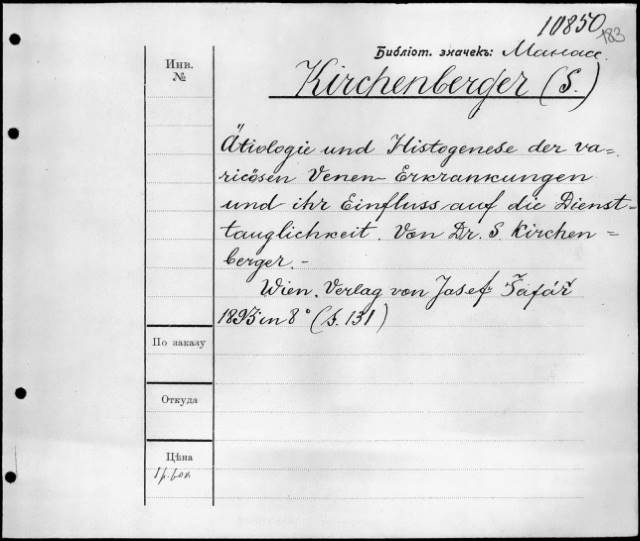 10850
183
Библіот. значекъ: Манасс.
Инв.
№
Kirchenberger (S.)
Ätiologie und Histogenese der va=
ricösen Venen-Erkrankungen
und ihr Einfluss auf die Dienst-
tauglichkeit. Von Dr. S. Kirchen=
berger. -
Wien. Verlag von Josef Šafář
1893 in 8° (S. 131)
По заказу
Откуда
Цѣна